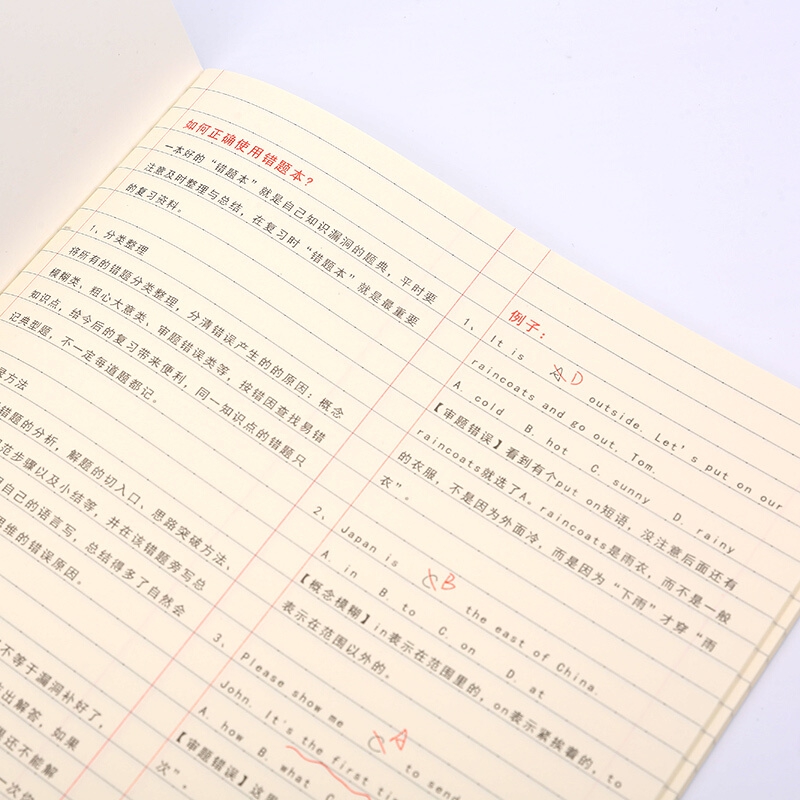 如何正确使用错题本?
一本好的“错题本”就是自己知识漏洞的题典，平时要
注意及时整理与总结，在复习时“错题本”就是最重要
的复习资料。
1、分类整理
将所有的错题分类整理，分清错误产生的的原因：概念
模糊类、粗心大意类、审题错误类等，按错因查找易错
知识点，给今后的复习带来便利，同一知识点的错题只
记典型题，不一定每道题都记。
方法
错题的分析，解题的切入口、思路突破方法、
范步骤以及小结等，并在该错题旁写总
自己的语言写，总结得多了自然会
思维的错误原因。
不等于漏洞补好了，
出解答，如果
还不能解
一次
例子：
1、It is A D outside. Let's put on our
raincoats and go out, Tom.
A. cold B. hot C. sunny D. rainy
【审题错误】看到有个put on短语，没注意后面还有
raincoats就选了A。raincoats是雨衣，而不是一般
的衣服，不是因为外面冷，而是因为“下雨”才穿“雨
衣”。
2、Japan is C B the east of China.
A. in B. to C. on D. at
【概念模糊】in表示在范围里的，on表示紧挨着的，to
表示在范围以外的。
3、Please show me C A to send
John. It's the first
A. how B. what C
【审题错误】这里
次”。